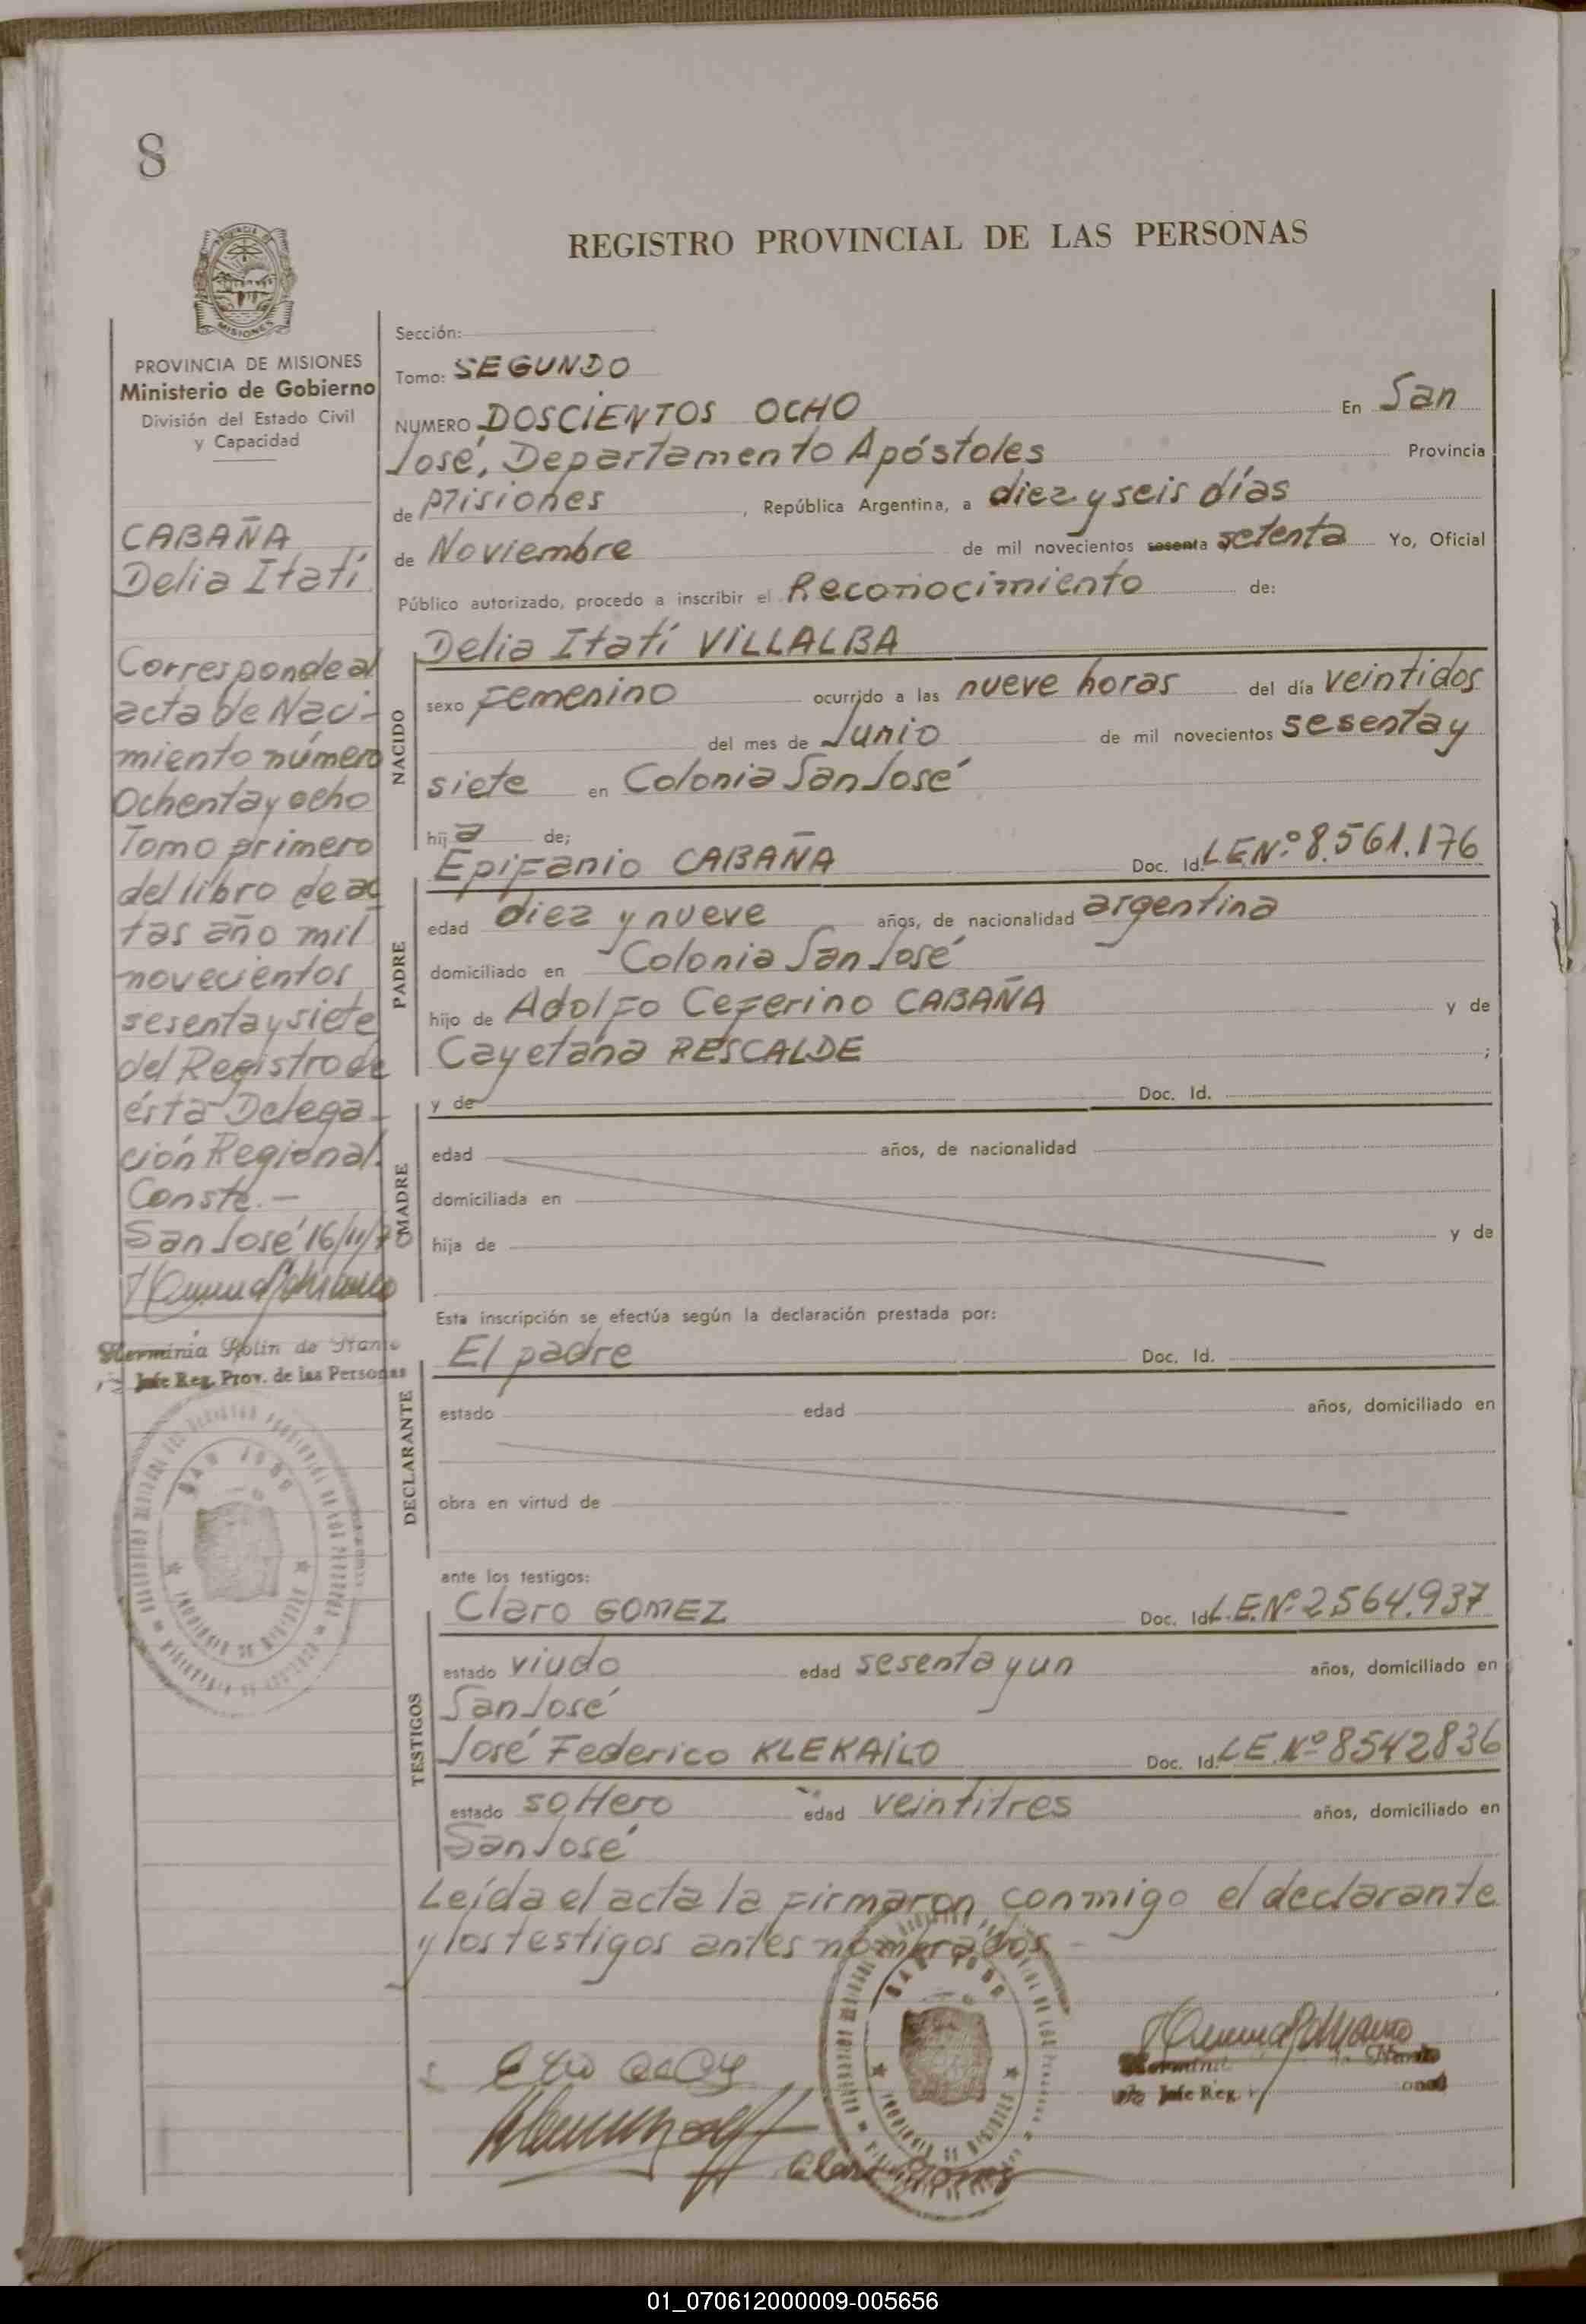 8
REGISTRO PROVINCIAL DE LAS PERSONAS
MISIONES
PROVINCIA DE MISIONES
Ministerio de Gobierno
División del Estado Civil
y Capacidad
CABAÑA
Delia Itatí
Corresponde al
acta de Naci-
miento número
Ochenta y ocho
Tomo primero
del libro de ac
tas año mil
novecientos
sesenta y siete
del Registro de
ésta Delega-
ción Regional.
Conste.-
San José 16/11/7
Herminia Rolin de
Jefe Reg. Prov. de las Personas
SAN JOSE
Sección:
Tomo: SEGUNDO
NUMERO DOSCIENTOS OCHO En San
José, Departamento Apóstoles Provincia
de Misiones, República Argentina, a diez y seis días
de Noviembre de mil novecientos sesenta setenta Yo, Oficial
Público autorizado, procedo a inscribir el Reconocimiento de:
Delia Itatí VILLALBA
NACIDO
sexo Femenino ocurrido a las nueve horas del día veintidos
del mes de Junio de mil novecientos sesenta y
siete en Colonia San José
hija de;
Epifanio CABAÑA Doc. Id. L.E.Nº 8.561.176
PADRE
edad diez y nueve años, de nacionalidad argentina
domiciliado en Colonia San José
hijo de Adolfo Ceferino CABAÑA y de
Cayetana RESCALDE ;
y de Doc. Id.
MADRE
edad años, de nacionalidad
domiciliada en
hija de y de
Esta inscripción se efectúa según la declaración prestada por:
El padre Doc. Id.
DECLARANTE
estado edad años, domiciliado en
obra en virtud de
ante los testigos:
Claro GOMEZ Doc. Id. L.E.Nº 2564.937
TESTIGOS
estado viudo edad sesenta y un años, domiciliado en
San José
José Federico KLEKAILO Doc. Id. L.E.Nº 8542836
estado soltero edad veintitres años, domiciliado en
San José
Leída el acta la firmaron conmigo el declarante
y los testigos antes nombrados.-
SAN JOSE
Jefe Reg.
01_070612000009-005656